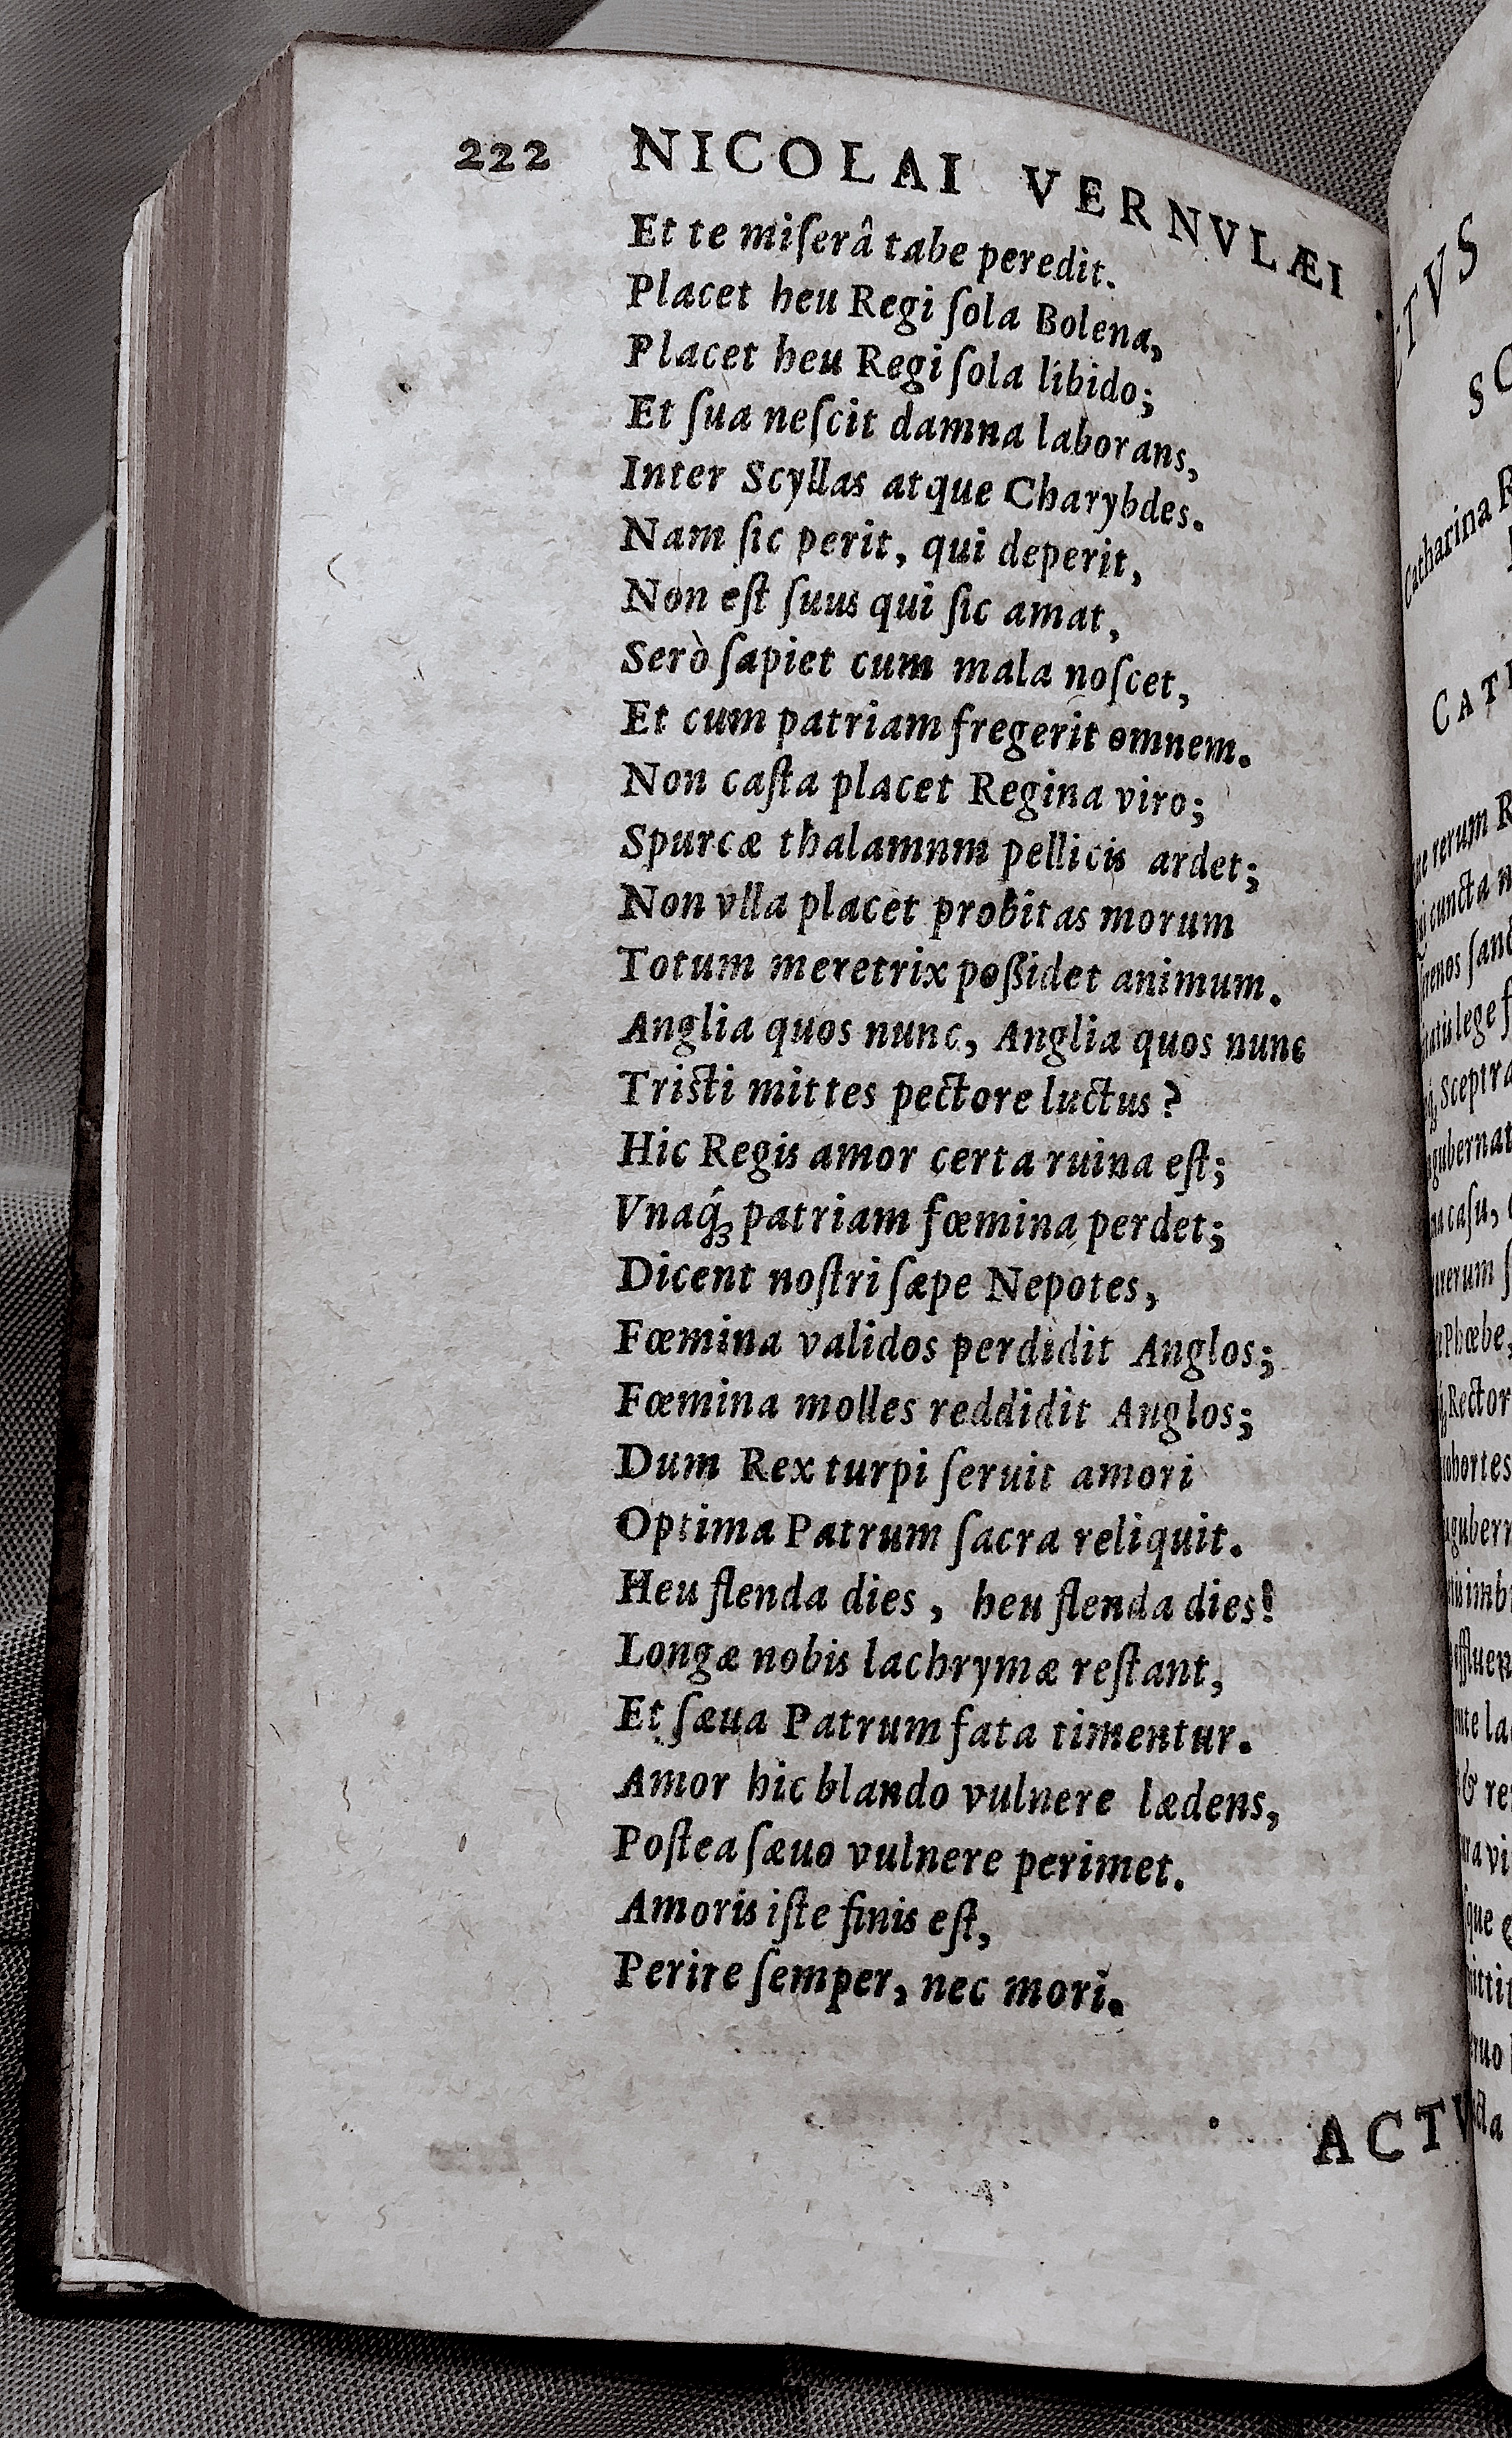 222 NICOLAI VERNVLÆI
Et te miſerâ tabe peredit.
Placet heu Regi ſola Bolena,
Placet heu Regi ſola libido;
Et ſua neſcit damna laborans,
Inter Scyllas atque Charybdes.
Nam ſic perit, qui deperit,
Non eſt ſuus qui ſic amat,
Serò ſapiet cum mala noſcet,
Et cum patriam fregerit omnem.
Non caſta placet Regina viro;
Spurcæ thalamnm pellicis ardet;
Non vlla placet probitas morum
Totum meretrix poſſidet animum.
Anglia quos nunc, Anglia quos nunc
Tristi mittes pectore luctus?
Hic Regis amor certa ruina eſt;
Vnaq́ꝫ patriam fœmina perdet;
Dicent noſtri ſæpe Nepotes,
Fœmina validos perdidit Anglos;
Fœmina molles reddidit Anglos;
Dum Rex turpi ſeruit amori
Optima Patrum ſacra reliquit.
Heu flenda dies, heu flenda dies!
Longæ nobis lachrymæ reſtant,
Et ſæua Patrum fata timentur.
Amor hic blando vulnere lædens,
Poſtea ſæuo vulnere perimet.
Amoris iſte finis eſt,
Perire ſemper, nec mori.
ACTV
Catharina
rerum
cuncta
lege
Sceptra
caſu,
Phœbe,
Rector